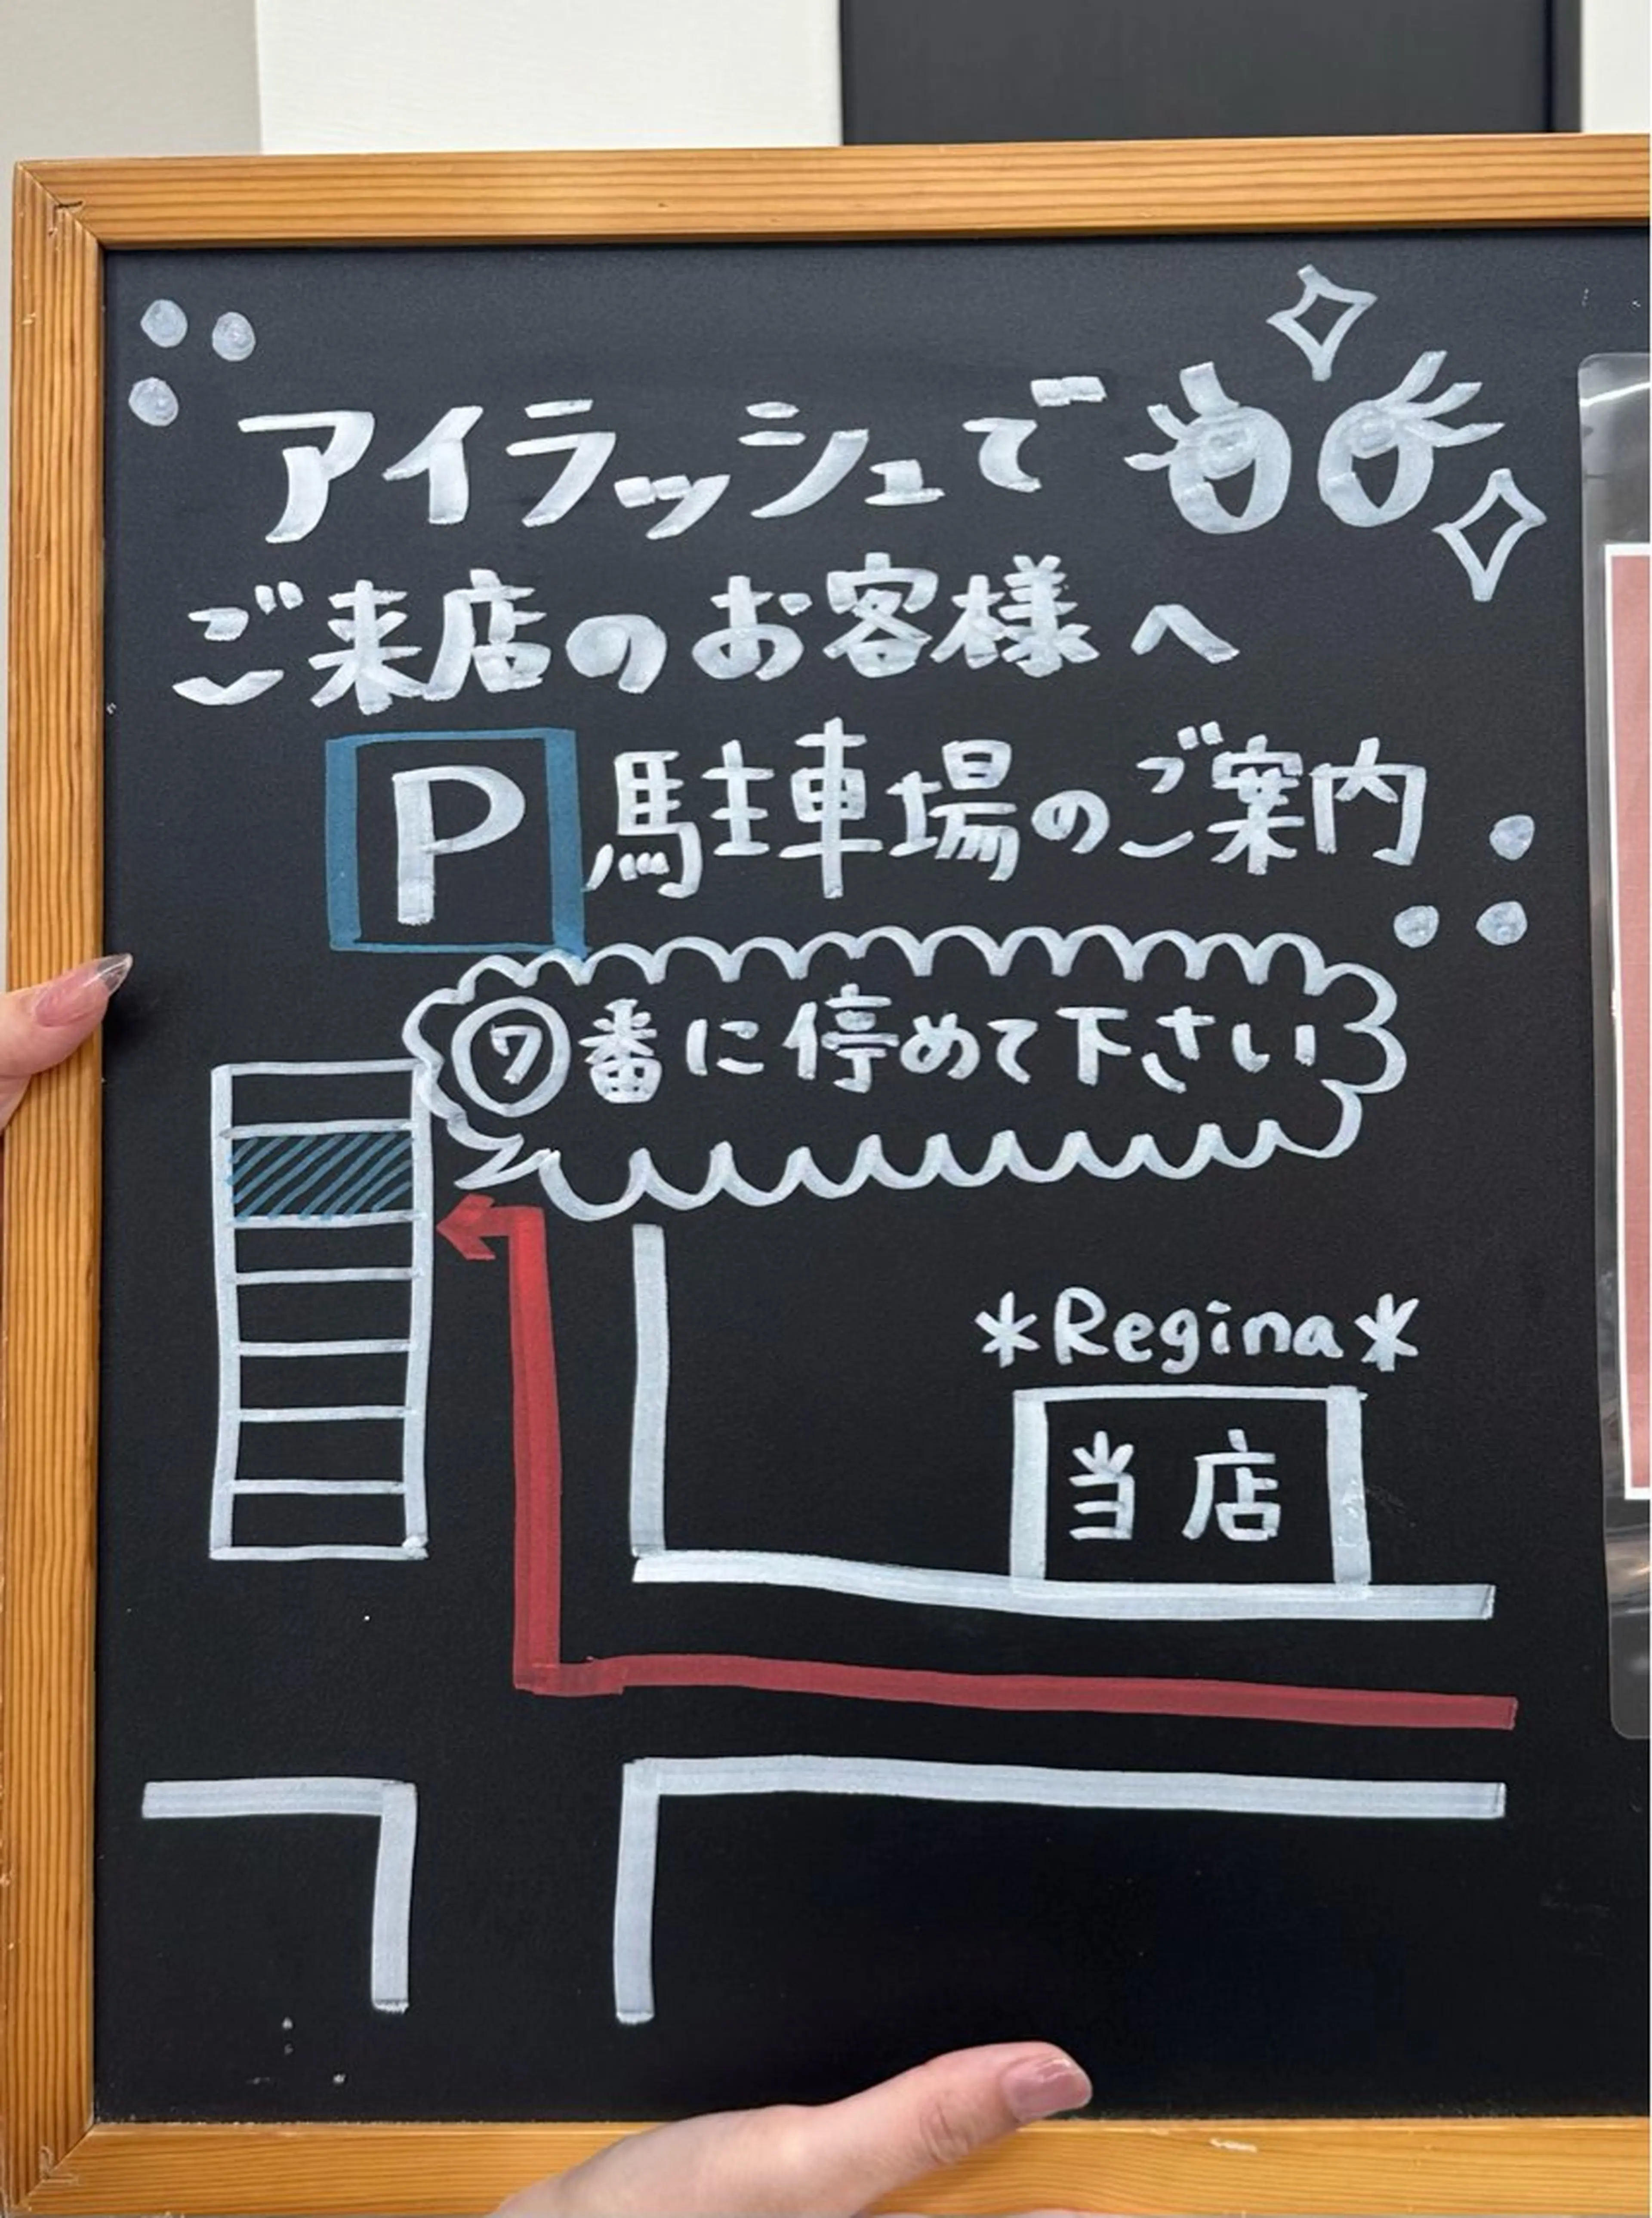 アイラッシュで
ご来店のお客様へ
P 駐車場のご案内
⑦番に停めて下さい
*Regina*
当店